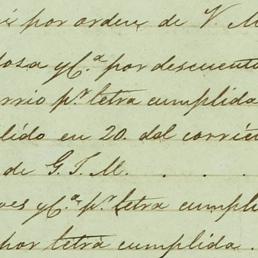 por orden de V. M
osa y C.ª por descuento
rrio p.r letra cumplida
lido en 20. del corrie
de G. J. M. . . .
es y C.ª p.r letra cumpli
por letra cumplida.